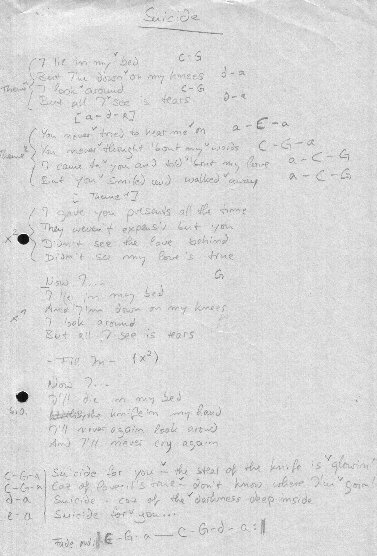 Suicide
I lie in my bed C-G
But I'm down on my knees d-a
Theme I look around C-G
But all I see is tears d-a
[a-d-a]
You never tried to hear me on a-C-a
Theme² You never thought 'bout my words C-G-a
I came to you and told 'bout my love a-C-G
But you smiled and walked away a-C-G
[Theme¹]
I gave you presents all the time
They weren't but you
x² Didn't see the love behind
Didn't see my love's true
G
Now I...
I lie in my bed
And I'm down on my knees
I look around
But all I see is tears
- Fill In - (x²)
Now I...
I'll die in my bed
knife in my hand
I'll never again look around
And I'll never cry again
C-G-a Suicide for you - the steal of the knife is glowin'
C-G-a don't know where I'm goin'
d-a Suicide - of the darkness deep inside
e-a Suicide for you...
Fade out: C-G-a — C-G-d-a :||